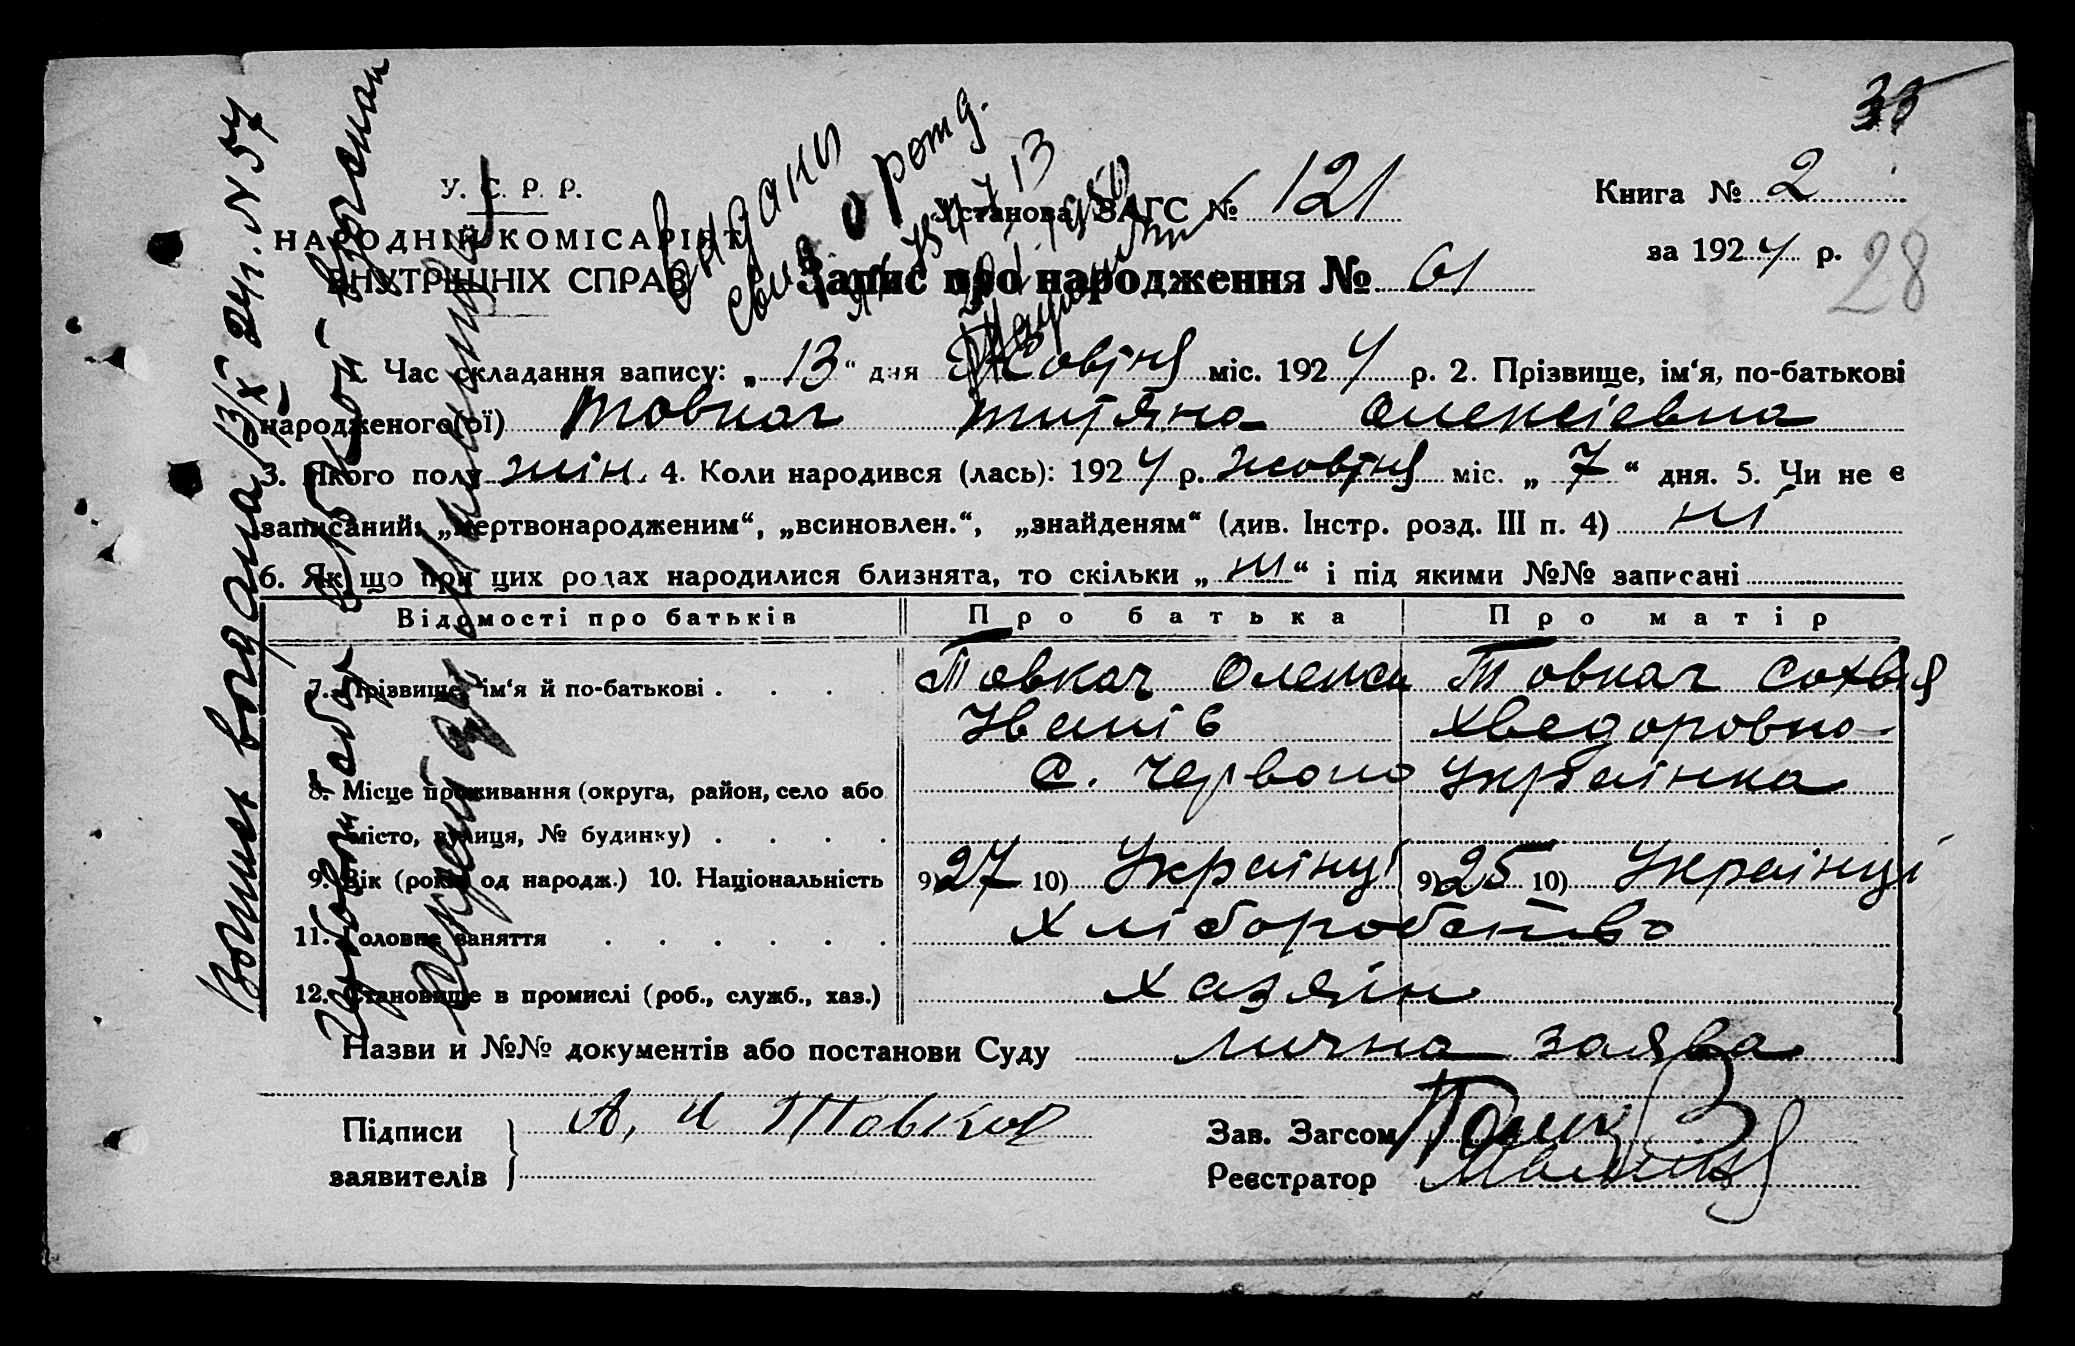 33
У. С. Р. Р.
НАРОДНІЙ КОМІСАРІЯТ
ВНУТРІШНІХ СПРАВ
Установа ЗАГС № 121
Книга № 2
за 1924 р.
28
Запис про народження № 61
1. Час складання запису: „ 13 “ дня Жовтня міс. 1924 р. 2. Прізвище, ім‘я, по-батькові
народженого(ої) Товкач Титяна Олексієвна
3. Якого полу жін. 4. Коли народився (лась): 1924 р. жовтня міс. „ 7 “ дня. 5. Чи не є
записаний: „мертвонародженим“, „всиновлен.“, „знайденям“ (див. Інстр. розд. III п. 4) ні
6. Як що при цих родах народилися близнята, то скільки „ ні “ і під якими №№ записані
Відомості про батьків Про батька Про матір
7. Прізвище, ім‘я й по-батькові . . . . Товкач Олекса Товкач Сохвія
Іванів Хведоровна
8. Місце проживання (округа, район, село або с. Червоно Українка
місто, вулиця, № будинку) . . . .
9. Вік (років од народж.) 10. Національність 9) 27 10) Українці 9) 25 10) Українці
11. Головне заняття . . . . . . Хліборобство
12. Становище в промислі (роб., служб., хаз.) хазяін
Назви и №№ документів або постанови Суду лична заява
Підписи
заявителів
А, И Товкач
Зав. Загсом
Реєстратор
Выданы
о рожд.
13
Вотисъ вогдана 13/X 24 г. N 57